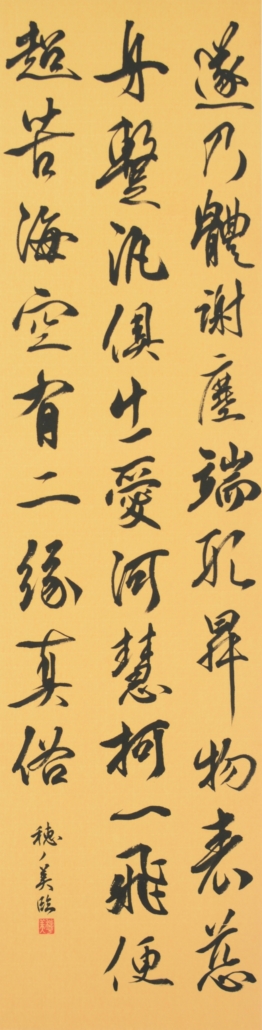 遂乃體謝塵端形昇物表慈
舟繋汎俱愛河慧柯一飛便
超苦海空有二緣真俗
穂ノ美臨